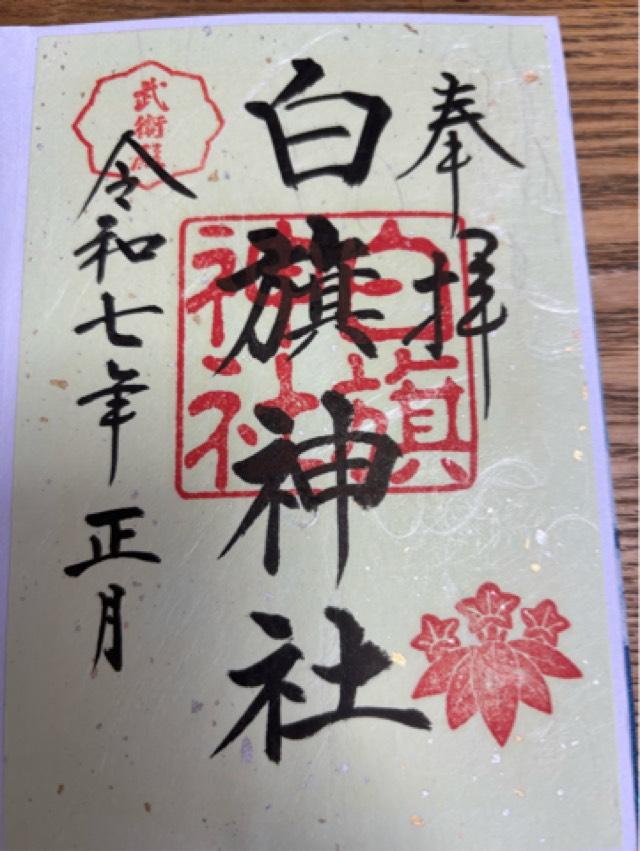 奉拝
白旗神社
白旗
神社
令和七年正月
武衛殿